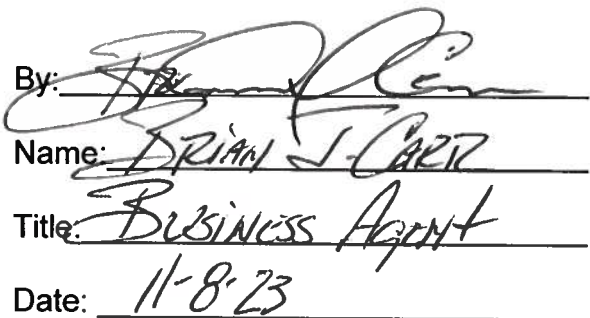 By:
Name: BRIAN J. CARR
Title: BUSINESS AgENt
Date: 11-8-23